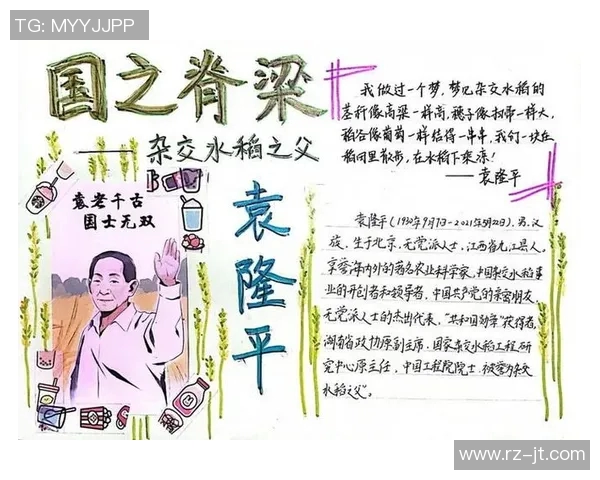 TG: MYYJJPP
国之脊梁
——杂交水稻之父
袁隆平
袁老千古
国士无双
我做过一个梦,梦见杂交水稻的
茎秆像高粱一样高,穗子像扫帚一样大,
稻谷像葡萄一样结得一串串,我们一块在
稻田里散步,在水稻下乘凉!
——袁隆平
袁隆平(1930年9月7日-2021年5月22日),男,汉
族,生于北京,无党派人士,江西省九江县人。
享誉海内外的著名农业科学家,中国杂交水稻事
业的开创者和领导者,中国共产党的亲密朋友,
无党派人士的杰出代表,“共和国勋章”获得者,
湖南省政协原副主席,国家杂交水稻工程研
究中心原主任,中国工程院院士,被誉为杂交
水稻之父”。
www.rz-jt.com